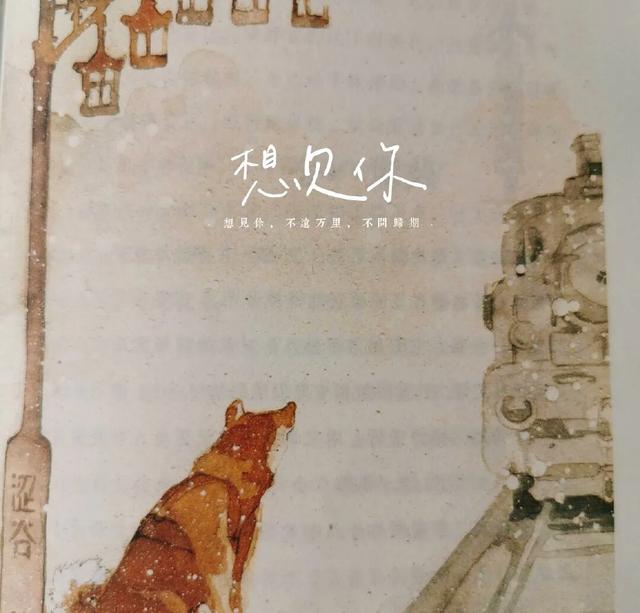 想见你
想見你，不遠万里，不問歸期
涩谷